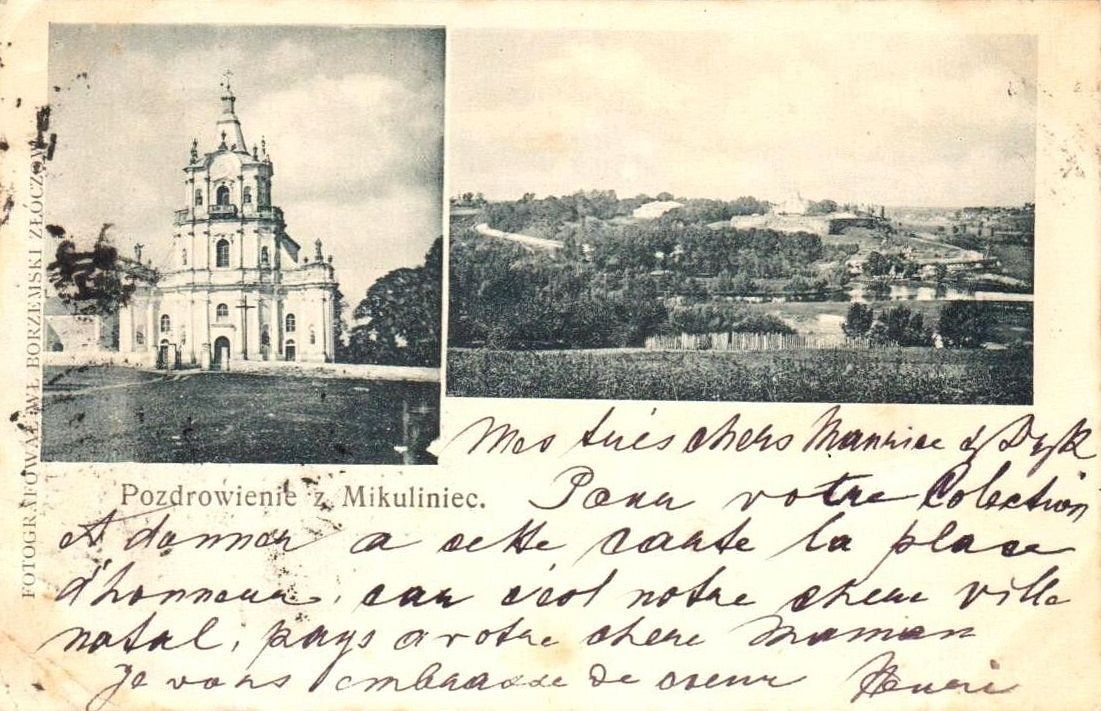 FOTOGRAFOWAŁ WŁ BORZEMSKI ZŁÓCZÓW
Pozdrowienie z Mikuliniec.
Mes très chers Maurice & Dyk
Pour votre Colection
A donner a cette carte la place
d'honneur, car c'est notre chere ville
natal, pays a votre chere Maman
Je vous embrasse de coeur Henri